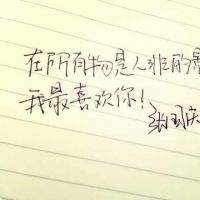 在所有物是人非的景
我最喜欢你！
国庆